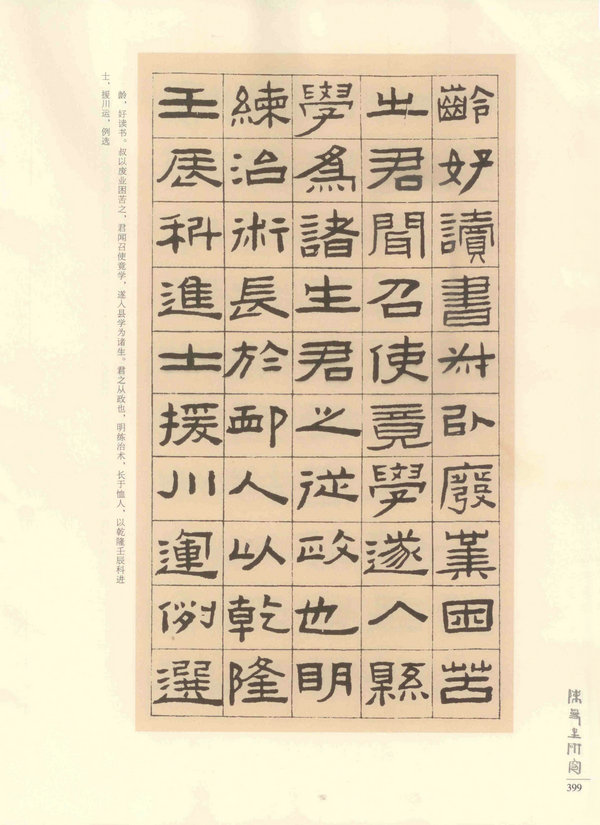 齡好讀書尗㠯廢業困苦
之君聞召使竟學遂入縣
學爲諸生君之從政也明
練治術長於卹人以乾隆
壬辰科進士援川運例選
龄，好读书。叔以废业困苦之，君闻召使竟学，遂入县学为诸生。君之从政也，明练治术，长于恤人，以乾隆壬辰科进
士，援川运，例选
399